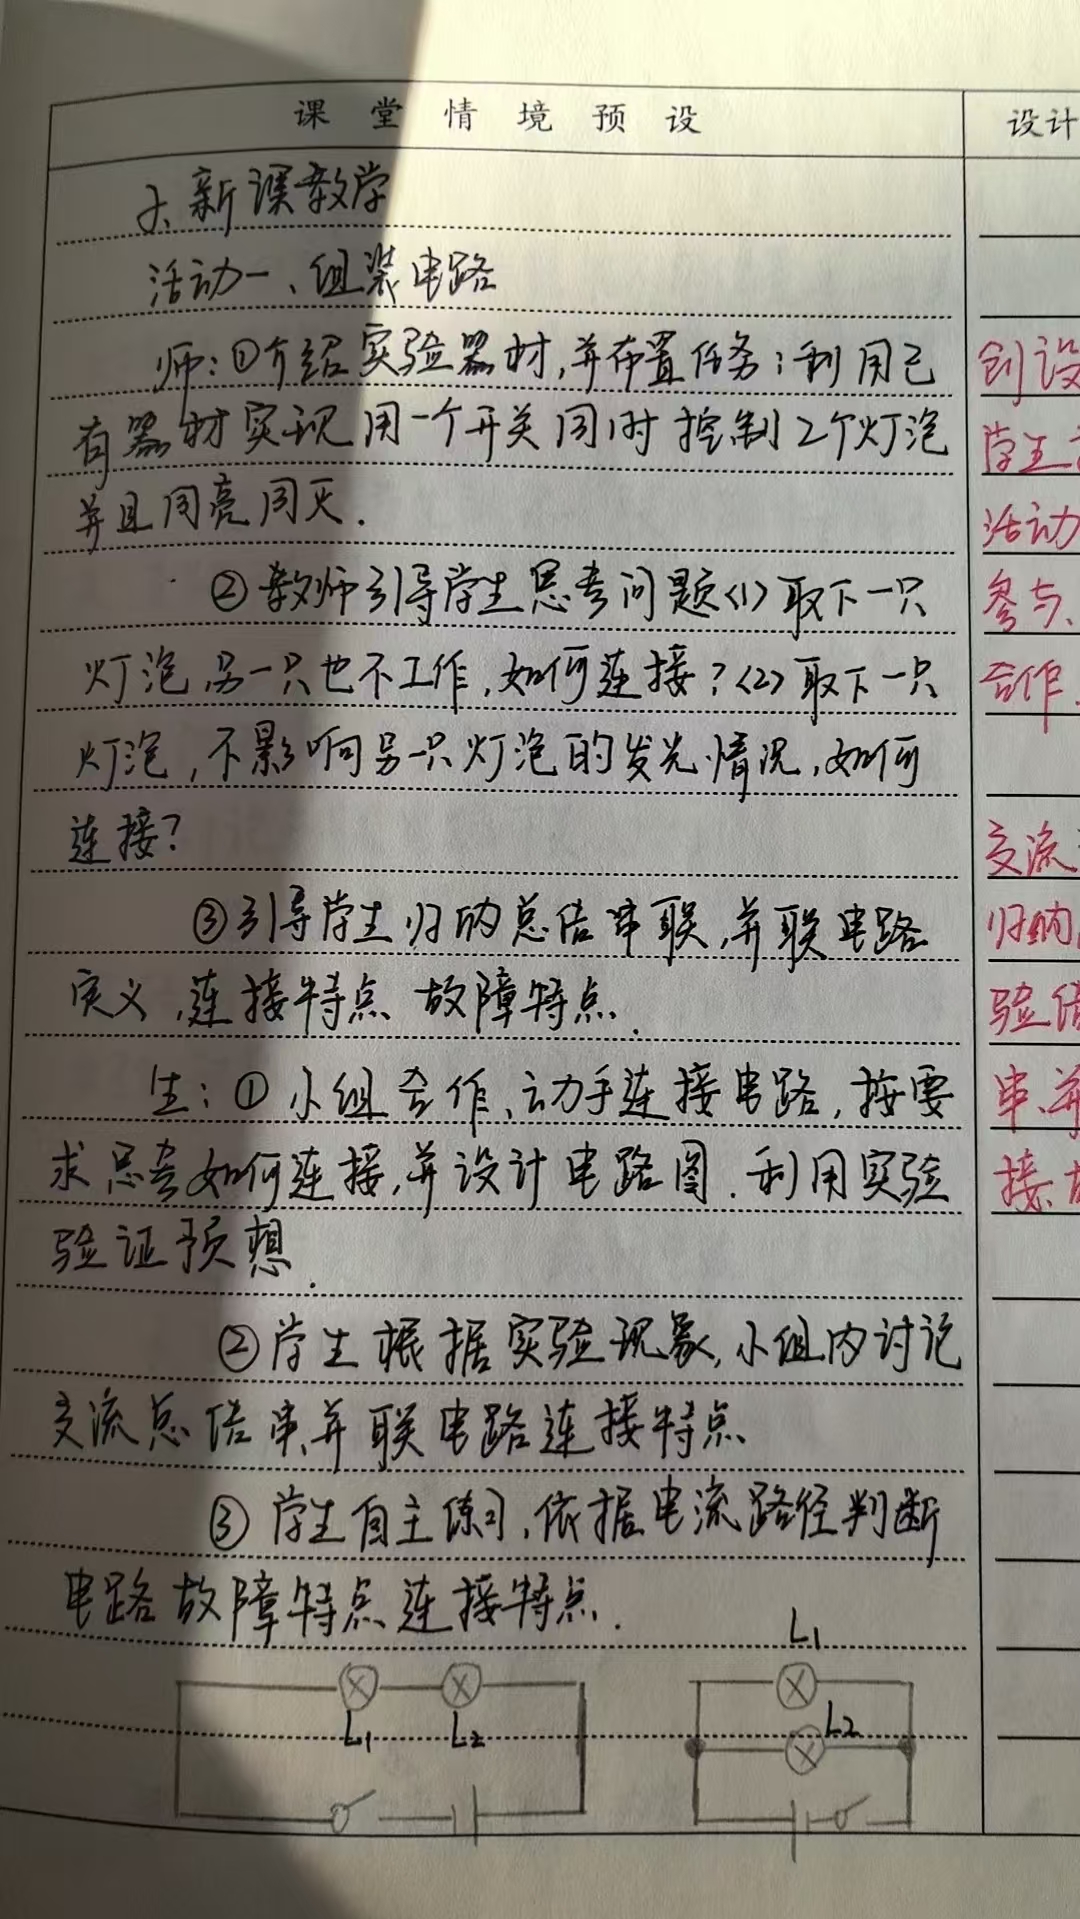 课堂情境预设
设计
二、新课教学
活动一、组装电路
师:①介绍实验器材,并布置任务:利用已
有器材实现用一个开关同时控制2个灯泡
并且同亮同灭.
②教师引导学生思考问题<1>取下一只
灯泡,另一只也不工作,如何连接?<2>取下一只
灯泡,不影响另一只灯泡的发光情况,如何
连接?
③引导学生归纳总结串联,并联电路
定义,连接特点 故障特点.
生:①小组合作、动手连接电路,按要
求思考如何连接,并设计电路图.利用实验
验证预想.
②学生根据实验现象,小组内讨论
交流总结串、并联电路连接特点
③学生自主练习,依据电流路径判断
电路故障特点连接特点.
L1 L2
L1
L2
创设
学生
活动
参与、
合作
交流
归纳
验结
串、并
接、故